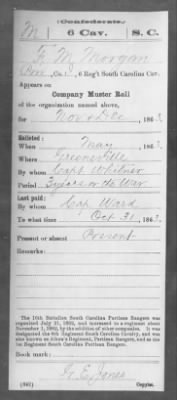 Confederate.
M 6 Cav. S. C.
F. M. Morgan
Pvt, Co. , 6 Reg't South Carolina Cav.
Appears on
Company Muster Roll
of the organization named above,
for Nov & Dec, 186
Enlisted:
When May, 186
Where Greenville
By whom Capt Whitner
Period 3 years or the War
Last paid:
By whom Cap Ward
To what time Oct 31, 186
Present or absent Present
Remarks:
The 16th Battalion South Carolina Partisan Rangers was
organized July 21, 1862, and increased to a regiment about
November 1, 1862, by the addition of other companies. It was
designated the 6th Regiment South Carolina Cavalry, and was
also known as Aiken's Regiment, Partisan Rangers, and as the
1st Regiment South Carolina Partisan Rangers.
Book mark:
E. Jones
(642) Copyist.